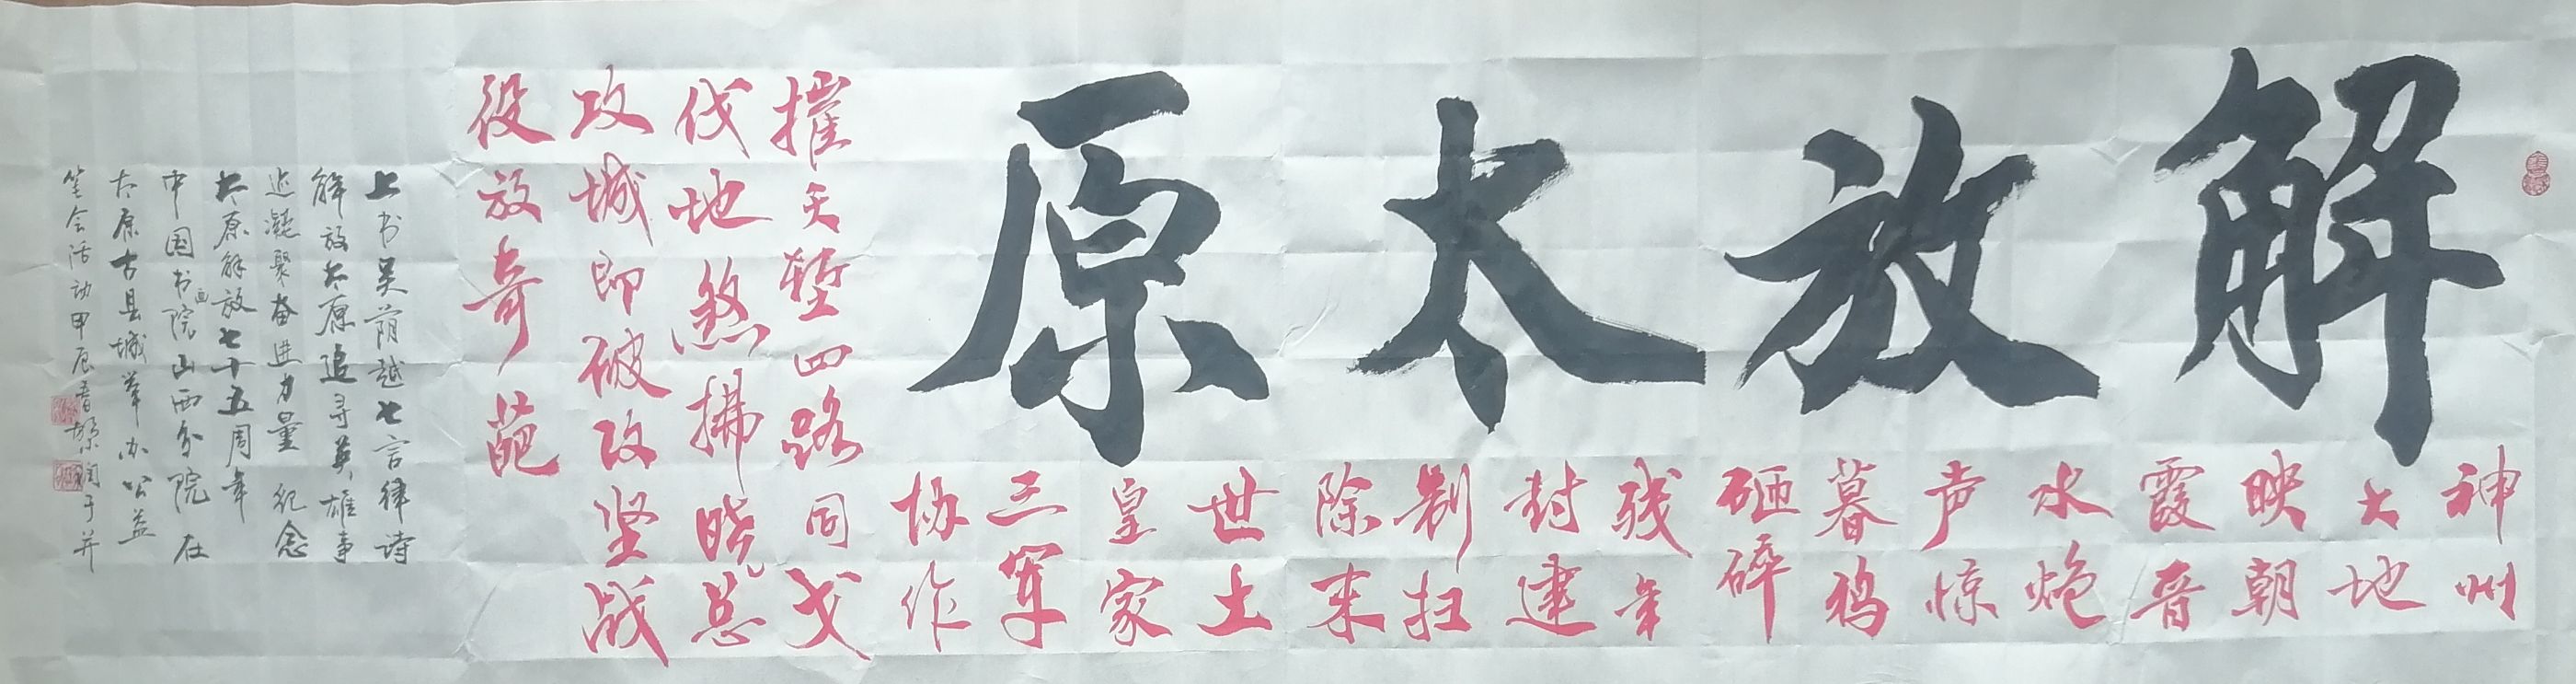 解放太原
神州
大地
映朝
霞晋
水炮
声惊
暮鸦
砸碎
残年
封建
制扫
除末
世土
皇家
三军
协作
摧天堑四路同戈
伐地煞拂晓总
攻城即破攻坚战
役放奇葩
上书吴荫越七言律诗
解放太原追寻英雄事
迹凝聚奋进力量纪念
太原解放七十五周年
中国书画院山西分院在
太原古县城举办公益
笔会活动甲辰春润于并